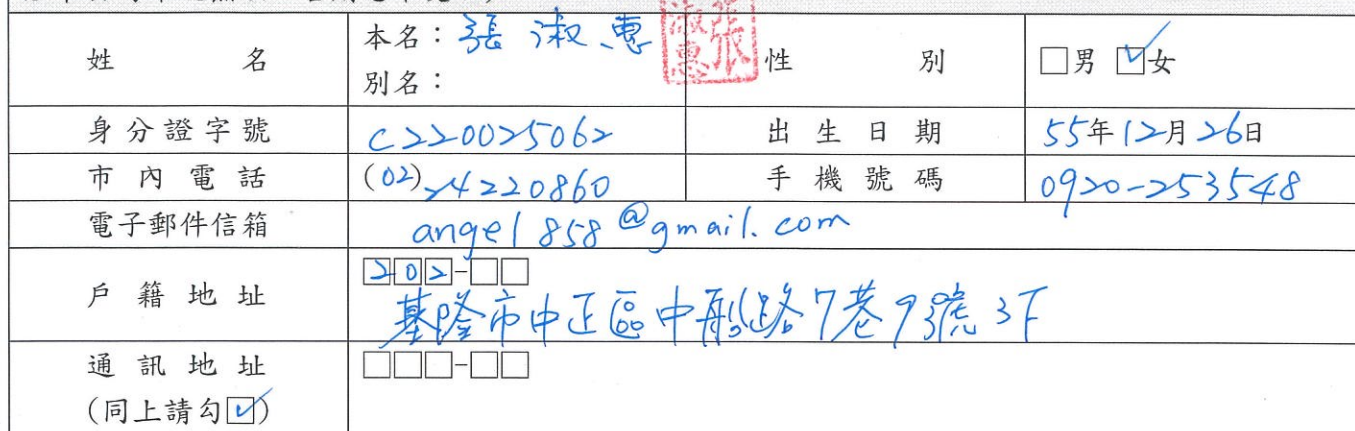 姓名 本名：張淑惠 張淑惠 性別 □男 ☑女
別名：
身分證字號 C220025062 出生日期 55年12月26日
市內電話 (02)24220860 手機號碼 0920-253548
電子郵件信箱 angel858@gmail.com
戶籍地址 202-□□
基隆市中正區中船路7巷9號3F
通訊地址 □□□-□□
(同上請勾☑)